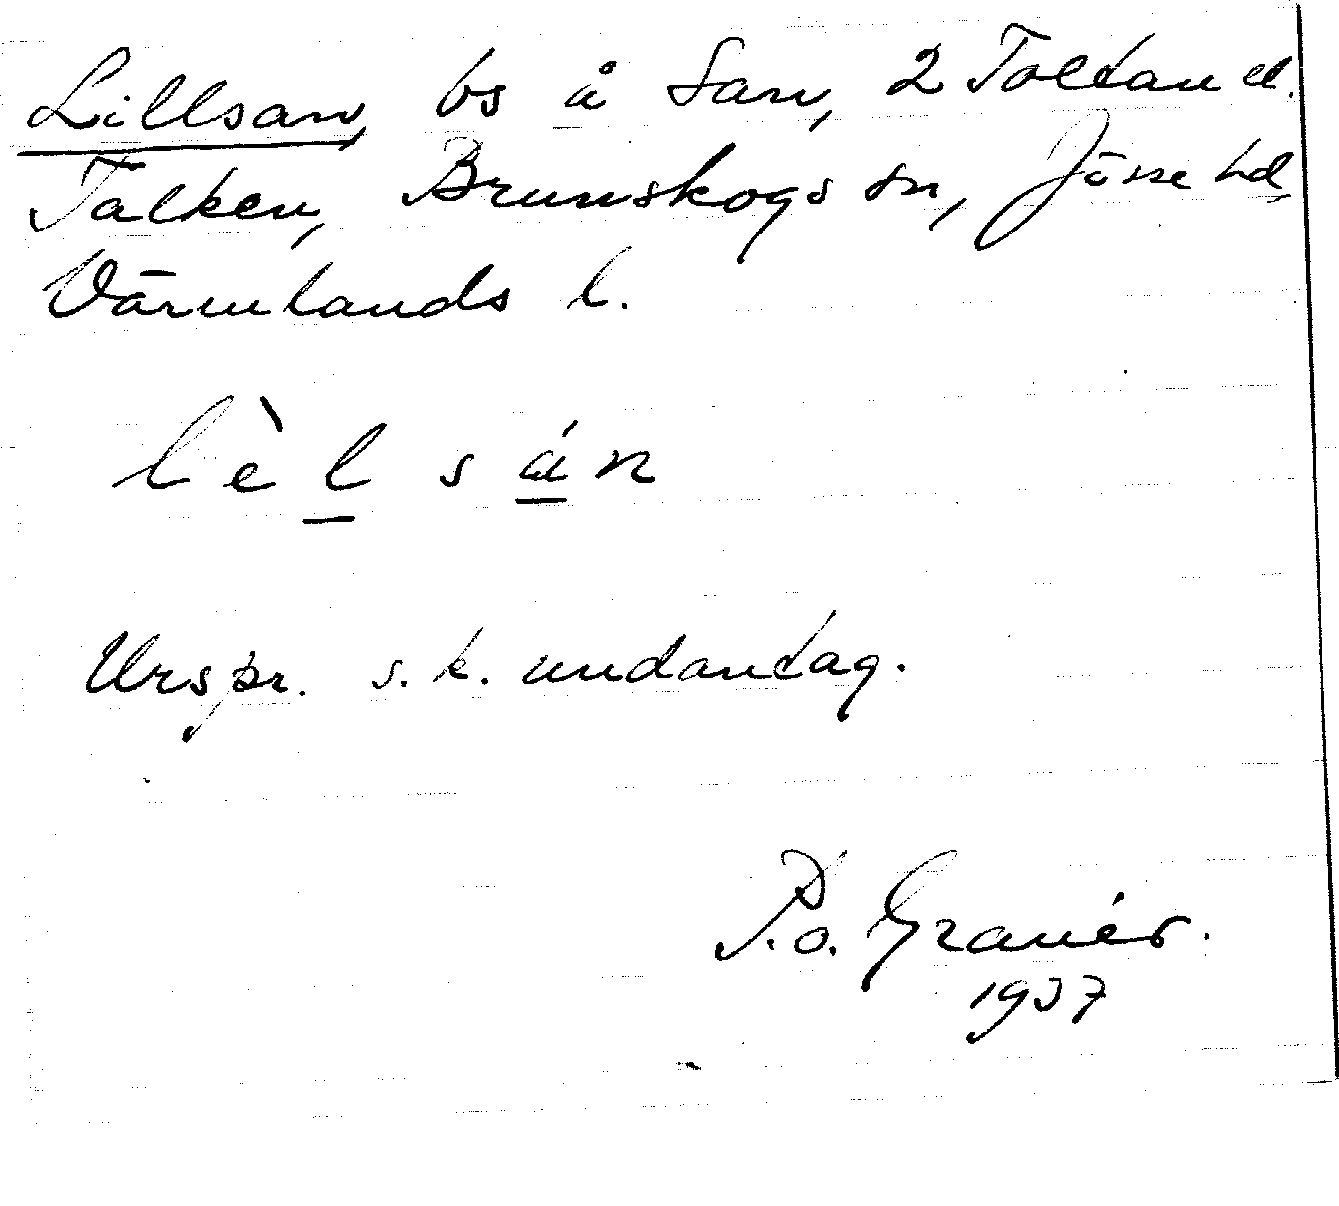 Lillsan, bs å San, 2 Toltan el.
Talken, Brunskogs sn, Jösse hd,
Värmlands l.
lèl sán
Urspr. s.k. undantag.
P.o. Granér.
1937